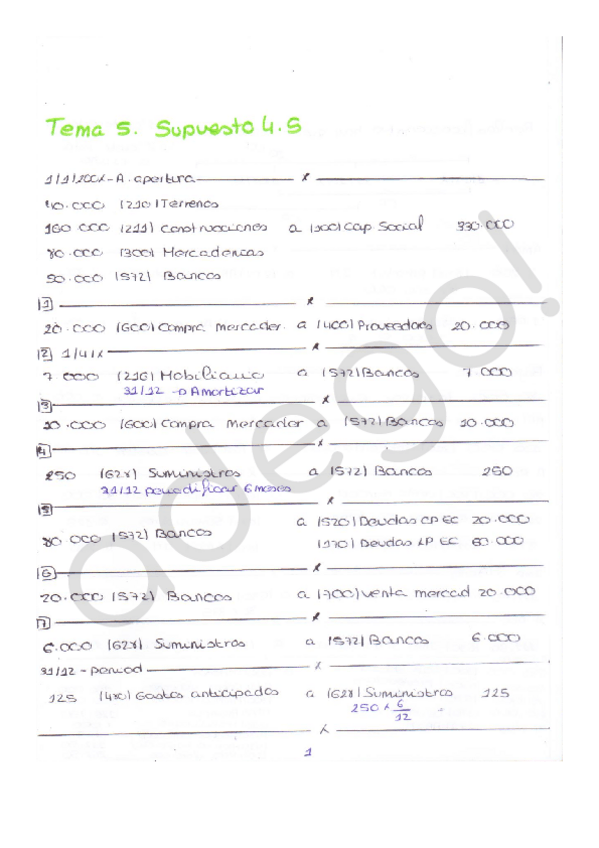 Tema 5. Supuesto 4.5
1/1/200X - A. apertura x
40.000 (210) Terrenos
160 000 (211) Construcciones a (100) Cap Social 330.000
80.000 (300) Mercaderías
50.000 (572) Bancos
1 x
20.000 (600) Compra mercader. a (400) Proveedores 20.000
2 1/4/X x
7 000 (216) Mobiliario a (572) Bancos 7 000
31/12 → Amortizar
3 x
10.000 (600) Compra mercader a (572) Bancos 10.000
4 x
250 (628) Suministros a (572) Bancos 250
31/12 periodificar 6 meses
5 x
a (520) Deudas CP EC 20.000
80 000 (572) Bancos
(170) Deudas LP EC 60.000
6 x
20.000 (572) Bancos a (700) Venta mercad 20 000
7 x
6.000 (628) Suministros a (572) Bancos 6 000
31/12 - period x
125 (480) Gastos anticipados a (628) Suministros 125
250 x 6/12 =
x
1
adego!